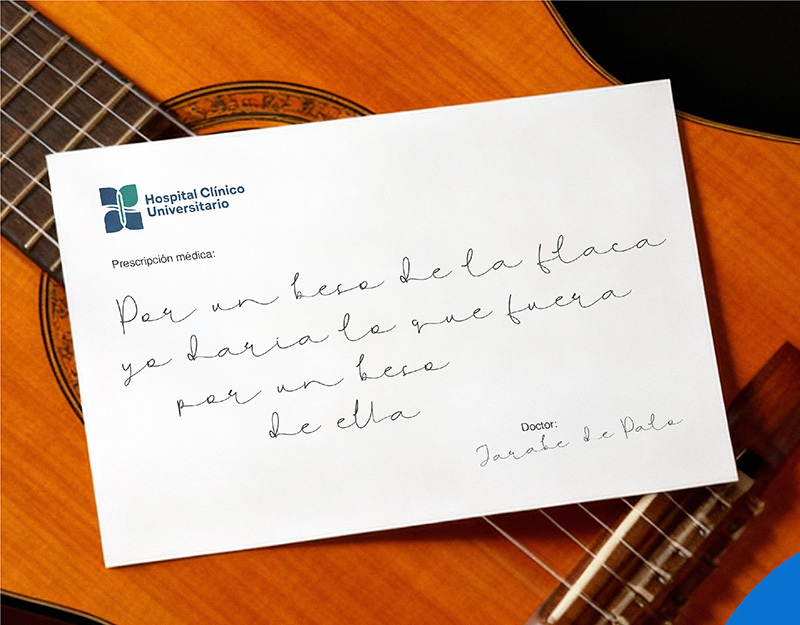 Hospital Clínico
Universitario
Prescripción médica:
Por un beso de la flaca
yo daria lo que fuera
por un beso
de ella
Doctor:
Jarabe de Palo